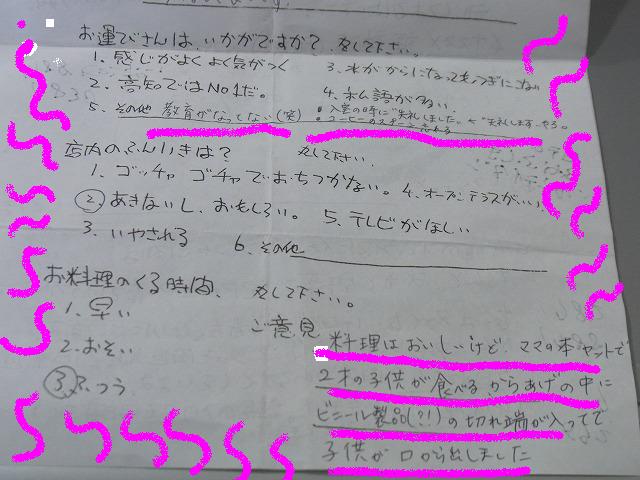 お運びさんは、いかがですか? 丸して下さい。
1. 感じがよくよく気がつく
3. 水がからになってもつぎにこない
2. 高知ではNo1だ。
4. 私語が多い。
5. その他 教育がなってない(笑)
• 入室の時に"失礼しました"
店内のふんいきは? 丸して下さい、
1. ゴッチャゴチャでおちつかない。
4. オープンテラスがいい
2. あきないし、おもしろい。
5. テレビがほしい
3. いやされる
6. その他
お料理のくる時間、 丸して下さい。
1. 早い
2. おそい
3. ふつう
ご意見
料理はおいしいけど、ママの本
2才の子供が食べるからあげの中に
ビニール製品(?!)の切れ端が入ってて
子供が口から出しました